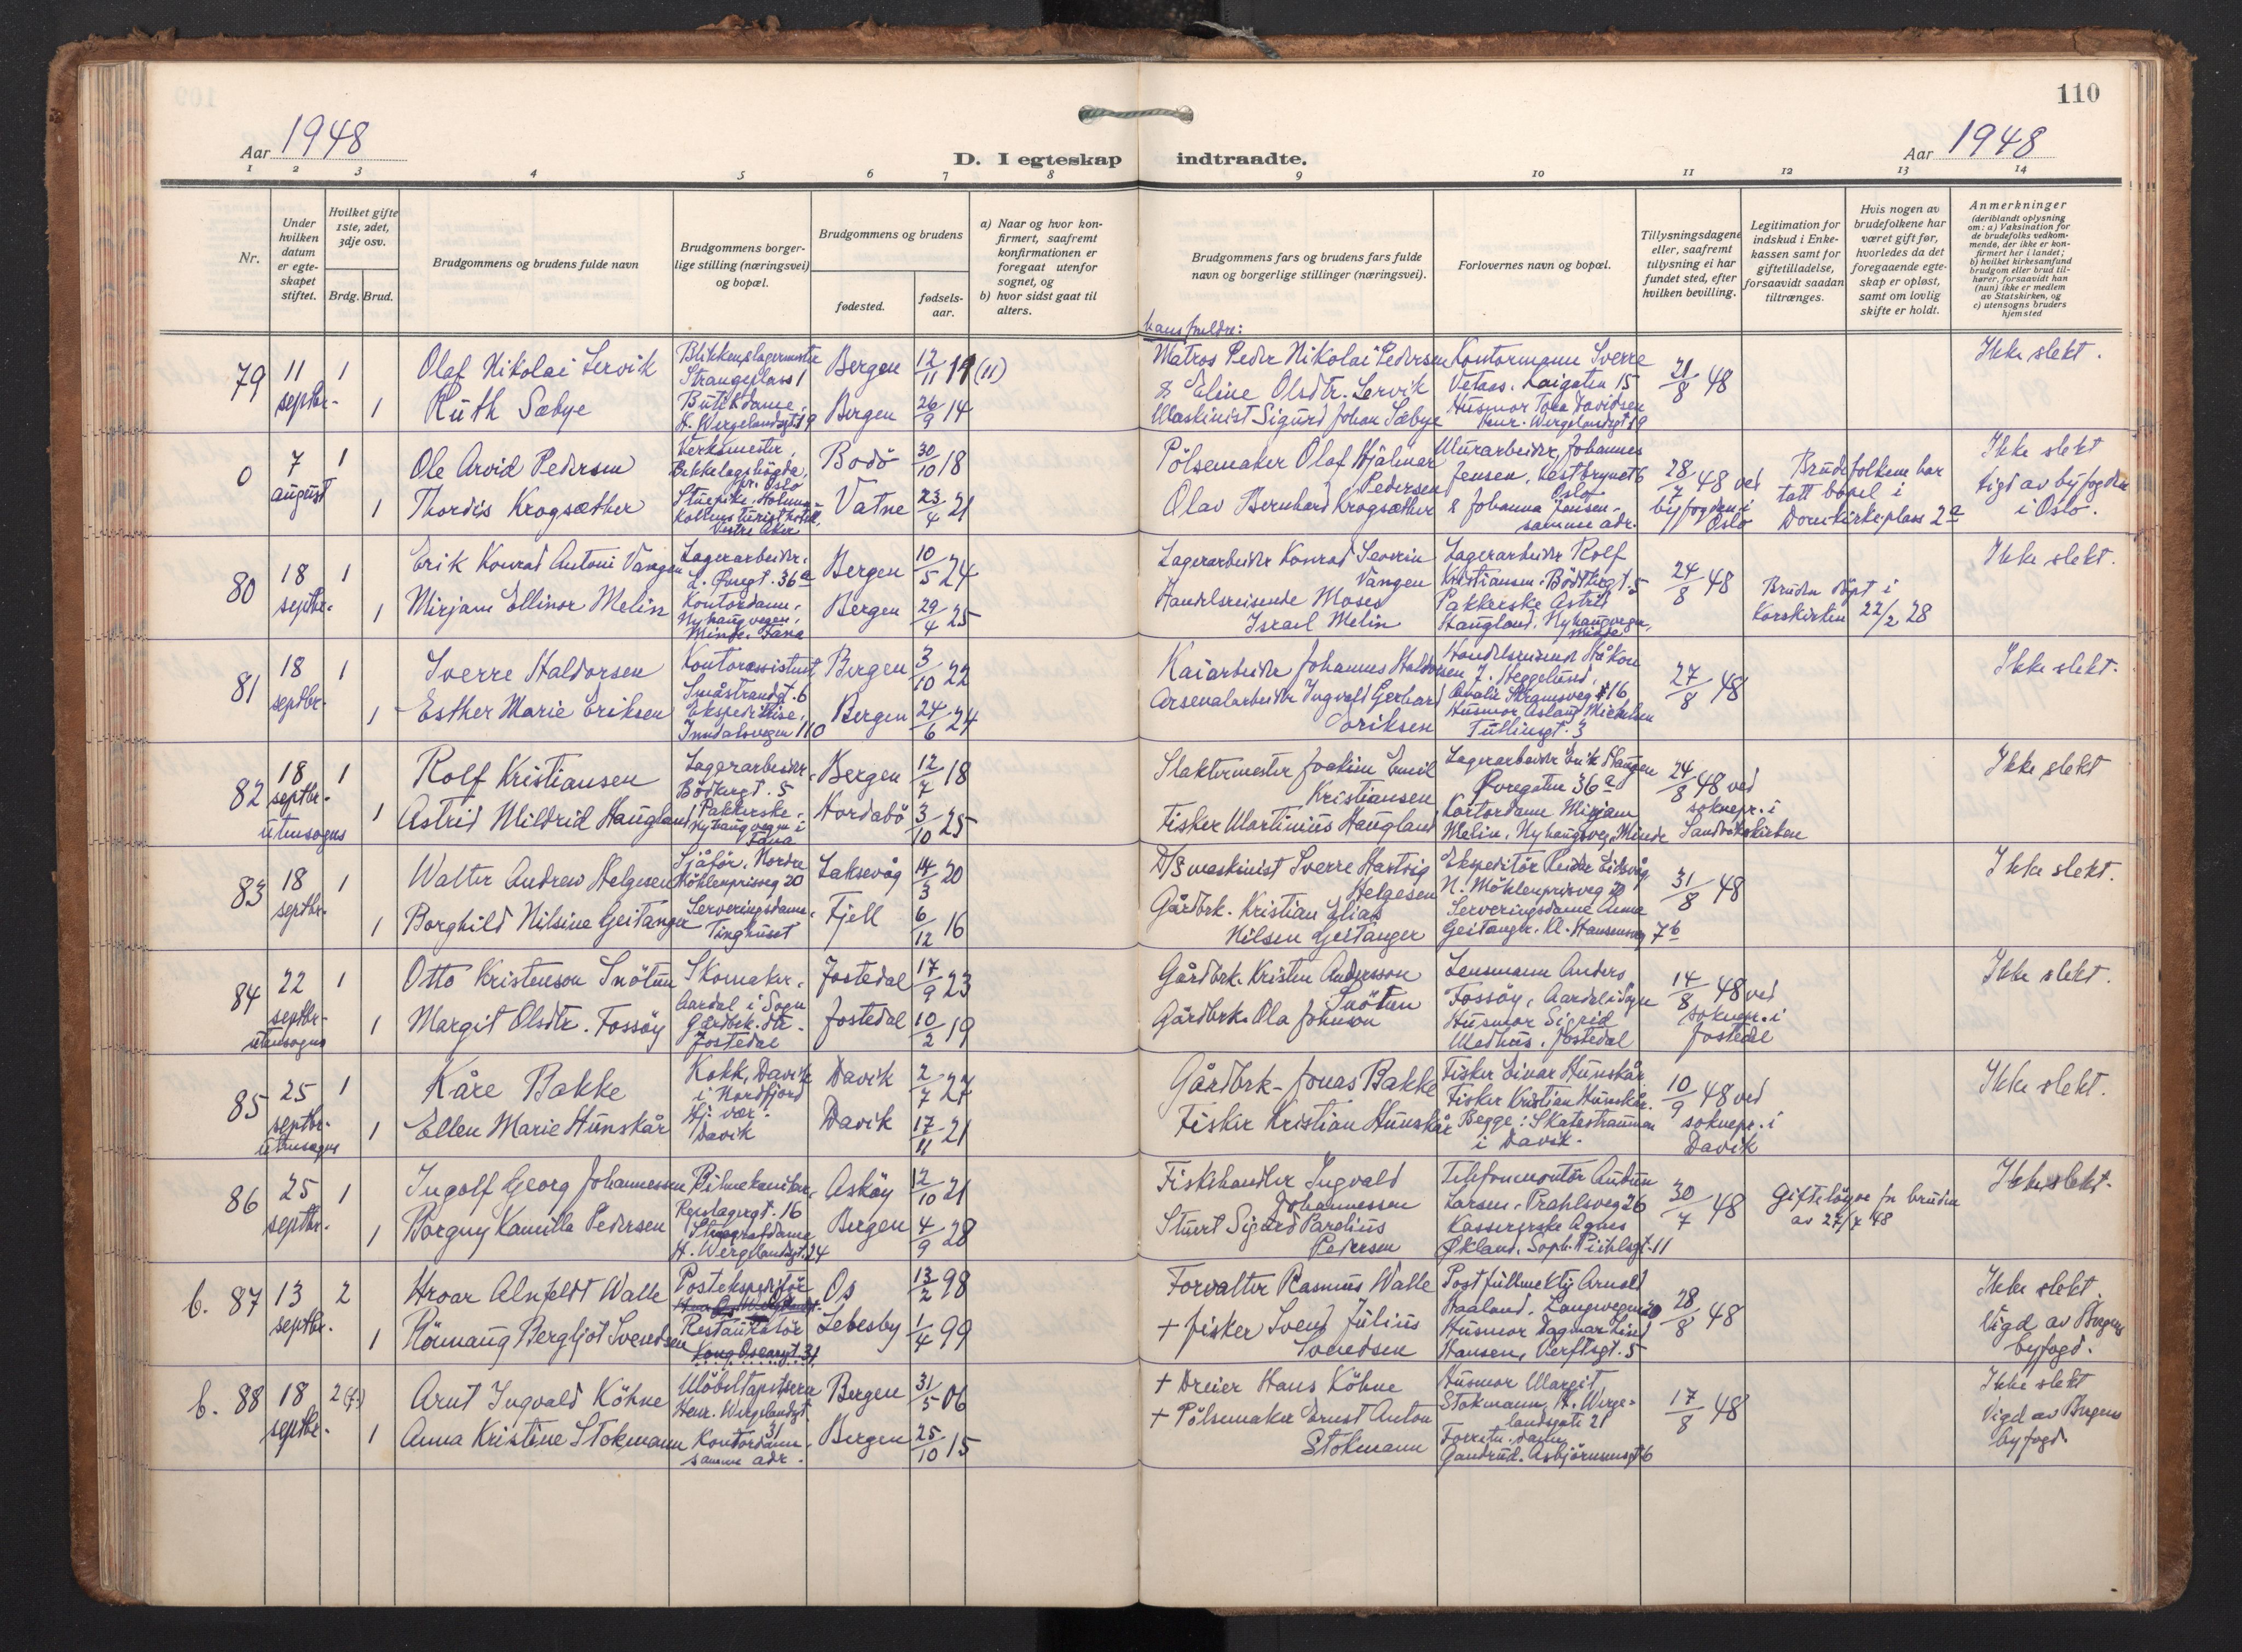 110
Aar 1948
D. I egteskap indtraadte.
Aar 1948
1 2 3 4 5 6 7 8 9 10 11 12 13 14
Nr.
Under hvilken datum er egteskapet stiftet.
Hvilket gifte 1ste, 2det, 3dje osv.
Brdg. Brud.
Brudgommens og brudens fulde navn
Brudgommens borgerlige stilling (næringsvei) og bopæl.
Brudgommens og brudens
fødested.
fødselsaar.
a) Naar og hvor konfirmert, saafremt konfirmationen er foregaat utenfor sognet, og
b) hvor sidst gaat til alters.
Brudgommens fars og brudens fars fulde navn og borgerlige stillinger (næringsvei).
Forlovernes navn og bopæl.
Tillysningsdagene eller, saafremt tillysning ei har fundet sted, efter hvilken bevilling.
Legitimation for indskud i Enkekassen samt for giftetilladelse, forsaavidt saadan tiltrænges.
Hvis nogen av brudefolkene har været gift før, hvorledes da det foregaaende egteskap er opløst, samt om lovlig skifte er holdt.
Anmerkninger
(deriblandt oplysning om: a) Vaksination for de brudefolks vedkommende, der ikke er konfirmert her i landet;
b) hvilket kirkesamfund brudgom eller brud tilhører, forsaavidt han (hun) ikke er medlem av Statskirken, og
c) utensogns bruders hjemsted
79 11 septbr. 1 Olaf Nikolai Lervik Blikkenslagermester Strangeplass 1 Bergen 12/11 19 (11)
hans foreldre:
Matros Peder Nikolai Pedersen & Eline Olsdtr. Lervik
Kontormann Sverre Vetaas. Kaigaten 15
21/8 48
Ikke slekt.
1 Ruth Sæbye Butikdame, H. Wergelandsgt. 19 Bergen 26/9 14
Maskinist Sigurd Johan Sæbye
Husmor Tora Davidsen Henr. Wergelandsgt 19
0 7 august 1 Ole Arvid Pedersen Verksmester, Bekkelagshøgda, pr. Oslo Bodö 30/10 18
Pölsemaker Olaf Hjalmar Pedersen
Murarbeider, Johannes Jensen, Vestbrynet 6 Oslo
28/7 48 ved byfogden i Oslo
Brudefolkene har tatt bopel i Domkirkeplass 2a
Ikke slekt
Vigd av byfogden i Oslo.
1 Thordis Krogsæther Stuepike. Holmenkollens turisthotell, Vestre Aker Vatne 23/4 21
Olav Bernhard Krogsæther
& Johanna Jensen. samme adr.
80 18 septbr. 1 Erik Konrad Antoni Vangen Lagerarbeider, L. Øvregt. 36a Bergen 10/5 24
Lagerarbeider Konrad Severin Vangen
Lagerarbeider Rolf Kristiansen. Bödkergt. 5
24/8 48
Bruden döpt i Korskirken 22/2 28
Ikke slekt.
1 Mirjam Ellinor Melin Kontordame, Nyhaugvegen, Minde. Fana Bergen 29/4 25
Handelsreisende Moses Israel Melin
Pakkerske Astrid Haugland, Nyhaugvegen, Minde
81 18 septbr. 1 Sverre Haldorsen Kontorassistent, Småstrandgt. 6 Bergen 3/10 22
Kaiarbeider Johannes Haldorsen
Handelsreisende Håkon J. Heggelund, Skramsveg 16
27/8 48
Ikke slekt.
1 Esther Marie Eriksen Ekspeditrise, Inndalsvegen 110 Bergen 24/6 24
Arsenalarbeider Ingvald Gerhard Eriksen
Husmor Aslaug Michelsen Tullinsgt. 3
82 18 septbr. utensogns 1 Rolf Kristiansen Lagerarbeider, Bödkergt. 5 Bergen 12/7 18
Slaktermester Joakim Emil Kristiansen
Lagerarbeider Erik Vangen Øvregaten 36a
24/8 48 ved soknepr. i Sandvikskirken
Ikke slekt
1 Astrid Mildrid Haugland Pakkerske, Nyhaugvegen i Fana Hordabö 3/10 25
Fisker Martinius Haugland
Kontordame Mirjam Melin, Nyhaugveg, Minde
83 18 septbr. 1 Walter Andrew Helgesen Sjåför. Nordre Möhlenprisveg 20 Laksevåg 14/3 20
D/S maskinist Sverre Hartvig Helgesen
Ekspeditör Reidar Eidsvåg N. Möhlenprisveg 20
31/8 48
Ikke slekt.
1 Borghild Nilsine Geitanger Serveringsdame, Tinghuset Fjell 6/12 16
Gårdbrk. Kristian Elias Nilsen Geitanger
Serveringsdame Anna Geitanger. Kl. Hansensveg 7b
84 22 septbr. utensogns 1 Otto Kristenson Snötun Skomaker, Aardal i Sogn Jostedal 17/9 23
Gårdbrk. Kristen Andersson Snötun
Lensmann Anders Fossöy, Aardal i Sogn
14/8 48 ved soknepr. i Jostedal
Ikke slekt.
1 Margit Olsdtr. Fossöy Gårdbrk. dtr. Jostedal Jostedal 10/2 19
Gårdbrk. Ola Johnson
Husmor Sigrid Medhus. Jostedal
85 25 septbr. utensogns 1 Kåre Bakke Kokk, Davik i Nordfjord Davik 2/7 27
Gårdbrk. Jonas Bakke
Fisker Einar Hunskår
10/9 48 ved soknepr. i Davik
Ikke slekt.
1 Ellen Marie Hunskår Hj. vær. Davik Davik 17/11 21
Fisker Kristian Hunskår
Fisker Kristian Hunskår. Begge: Skatestraumen i Davik.
86 25 septbr. 1 Ingolf Georg Johannessen Bilmekaniker, Repslagergt. 16 Asköy 12/10 21
Fiskehandler Ingvald Johannessen
Telefonmontör Audun Larsen, Prahlsveg 26
30/7 48
Gifteløyve for bruden av 27/7 48
Ikke slekt.
1 Borgny Kamilla Pedersen H. Wergelandsgt. 24 Bergen 4/9 28
Stuert Sigurd Parelius Pedersen
Kassererske Agnes Økland, Soph. Pihlsgt. 11
b. 87 13 septbr. 2 Hroar Alnfeldt Walle Postekspeditör Os 13/2 98
Forvalter Rasmus Walle
Postfullmektig Arnold Haaland. Langvegen 20
28/8 48
Ikke slekt.
Vigd av Bergens byfogd.
1 Römaug Bergljot Svendsen Restauratör Kong Oscarsgt. 31 Lebesby 1/4 99
+ fisker Svend Julius Svendsen
Husmor Dagmar Lind Hansen, Verftsgt. 5
b. 88 18 septbr. 2(f.) Arnt Ingvald Köhne Möbeltapetserer Henr. Wergelandsgt. 31 Bergen 31/5 06
+ Dreier Hans Köhne
Husmor Margit Stokmann, H. Wergelandsgate 21
17/8 48
Ikke slekt
Vigd av Bergens byfogd.
1 Anna Kristine Stokmann Kontordame, samme adr. Bergen 25/10 15
+ Pölsemaker Ernst Anton Stokmann
Forretn. dame Gandrud. Asbjörnsensgt 6